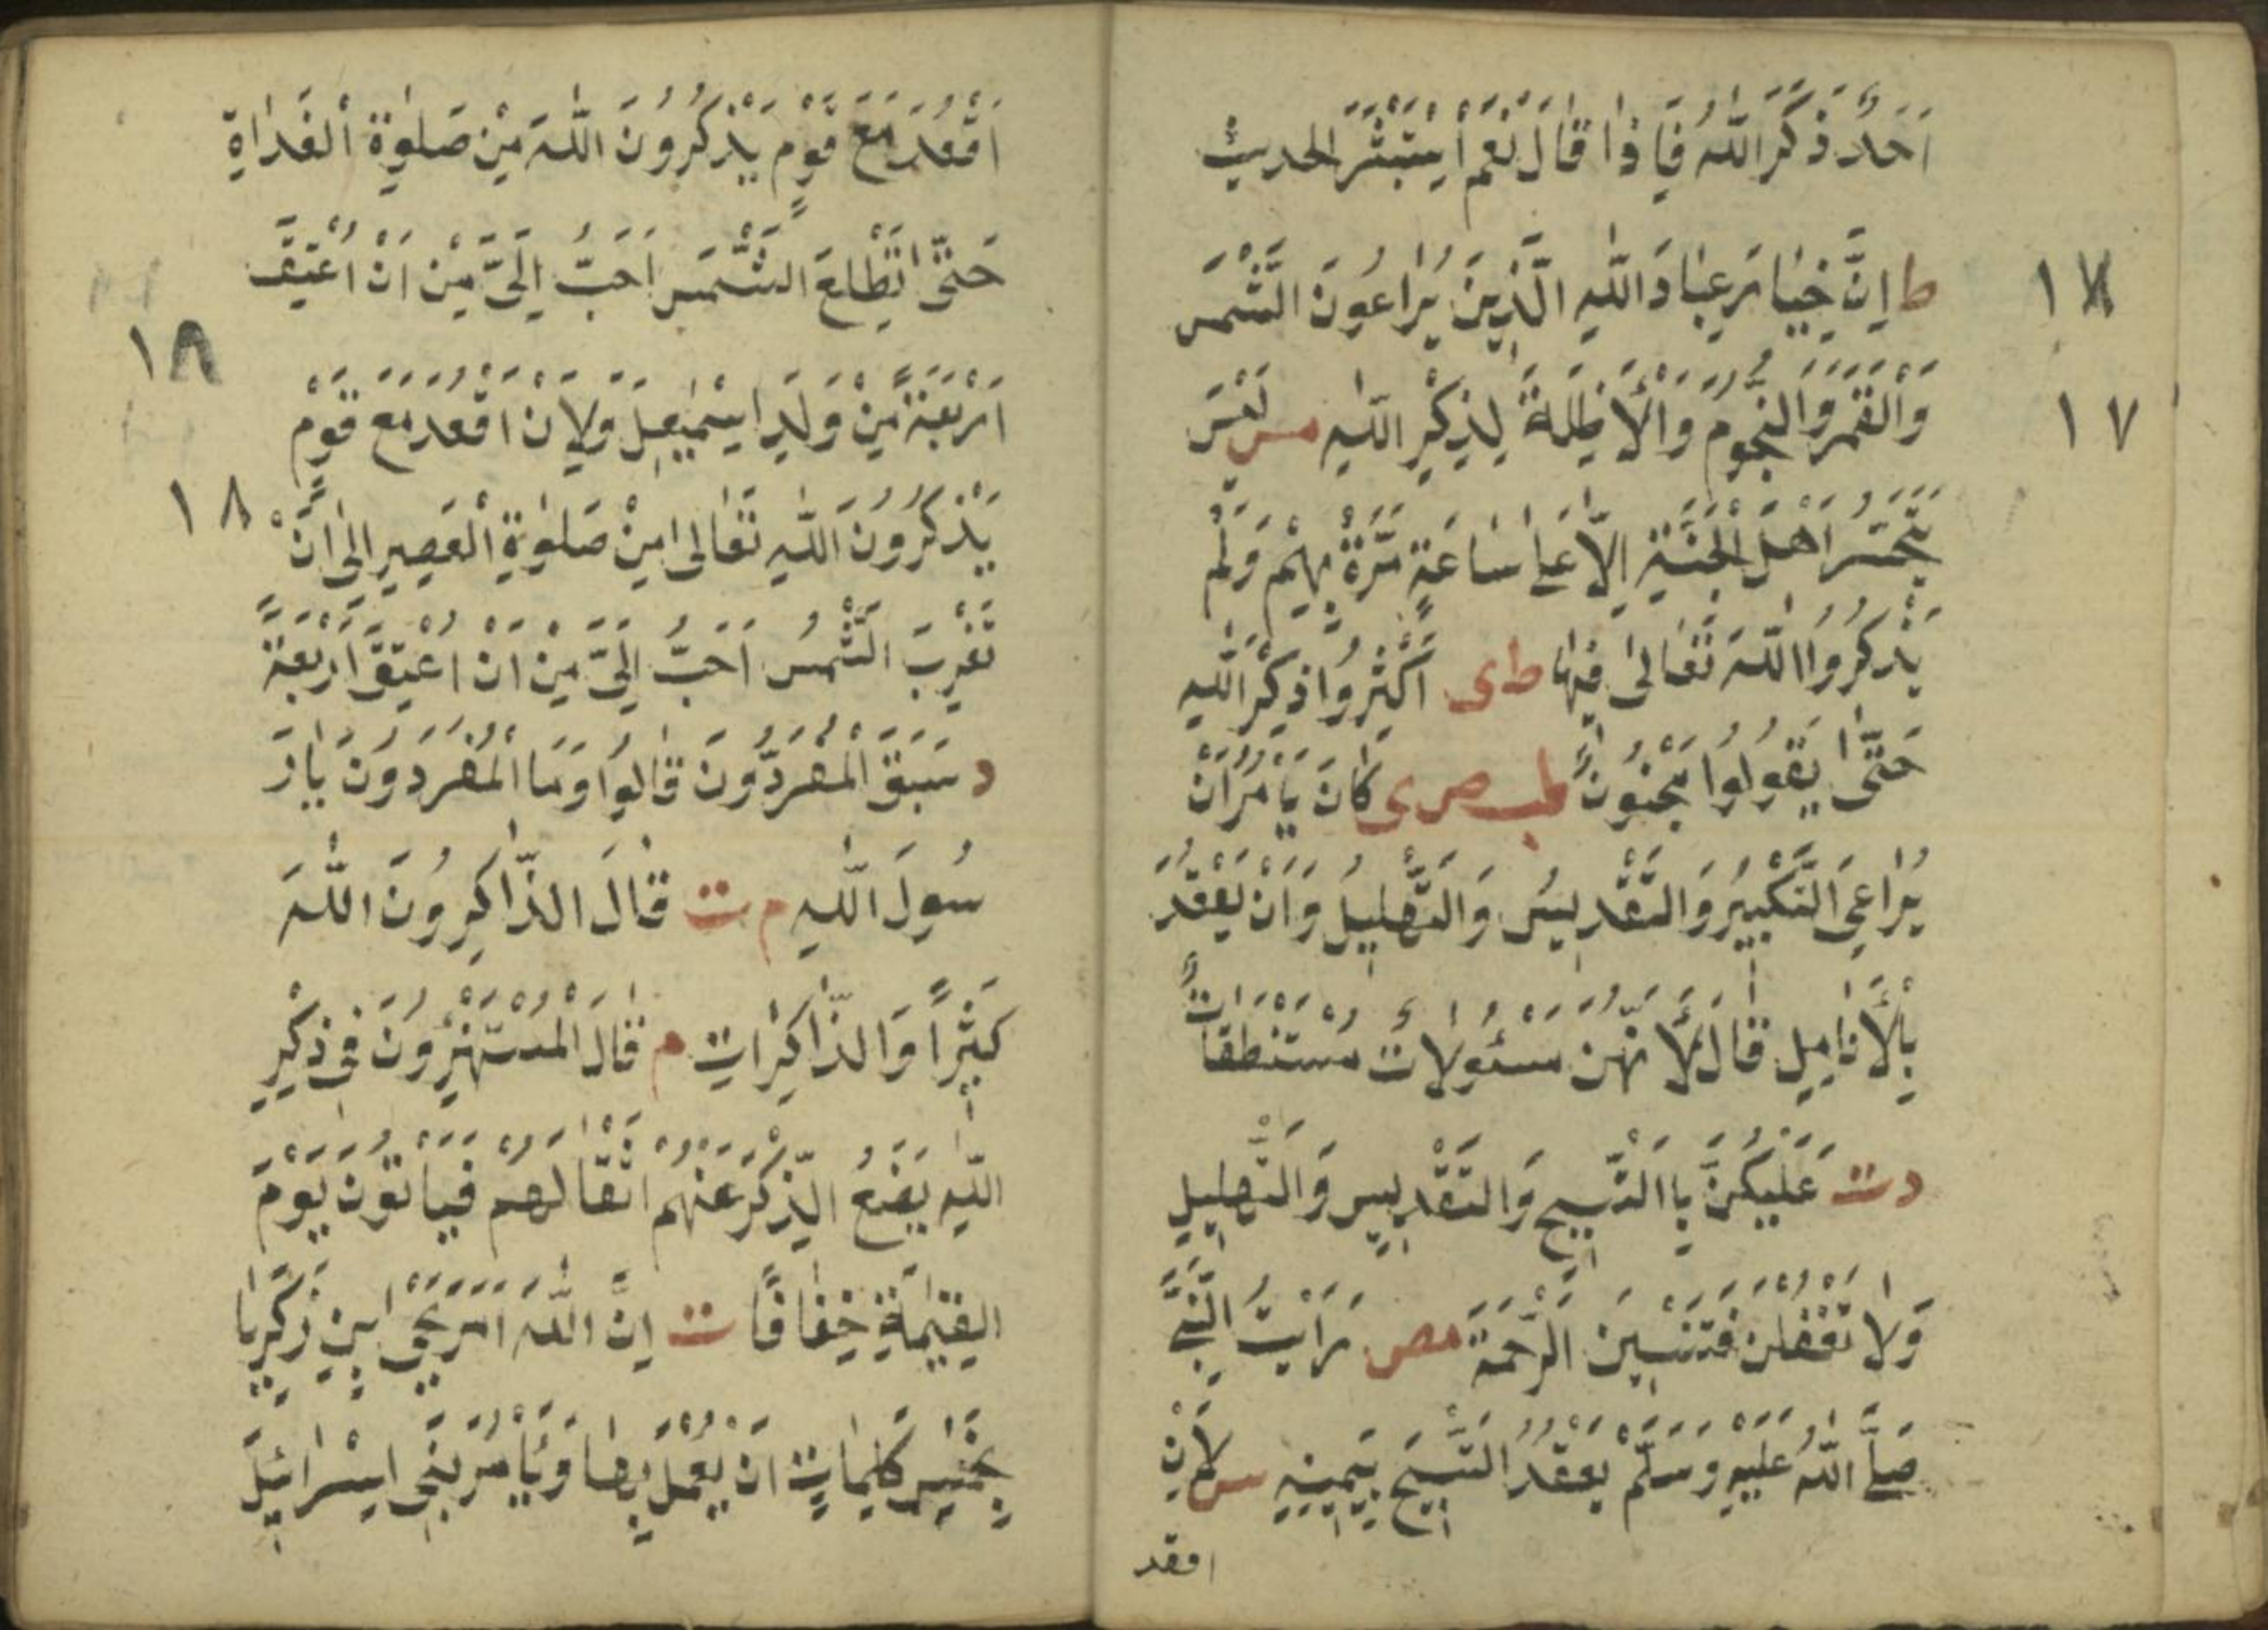 اَحَدٌ ذَكَرَ اللّٰهَ فَاِذَا قَالَ نَعَمْ اِسْتَبْشَرَ الحديث
ط اِنَّ خِيَارَ عِبَادَ اللّٰهِ الَّذِينَ يُرَاعُونَ الشَّمْسَ
١٧
وَالْقَمَرَ وَالنُّجُومَ وَالْاَظِلَّةَ لِذِكْرِ اللّٰهِ مس لَيْسَ
١٧
يَتَحَسَّرُ اَهْلَ الْجَنَّةِ اِلَّا عَلٰى سَاعَةٍ مَرَّةً بِهِمْ وَلَمْ
يَذْكُرُوا اللّٰهَ تَعَالٰى فِيهَا ط ى اَكْثِرُوا ذِكْرَ اللّٰهِ
حَتّٰى يَقُولُوا مَجْنُونٌ حب ص ى كَانَ يَأْمُرُ اَنْ
يُرَاعِىَ التَّكْبِيرُ وَالتَّقْدِيسُ وَالتَّهْلِيلُ وَاَنْ يَعْقُدَ
بِالْاَنَامِلِ قَالَ لِاَنَّهُنَّ مَسْئُولَاتٌ مُسْتَنْطَقَاتٌ
د ت عَلَيْكُنَّ بِاالتَّسْبِيحِ وَالتَّقْدِيسِ وَالتَّهْلِيلِ
وَلَا تَغْفُلْنَ فَتَنْسِينَ الرَّحْمَةَ مص رَاَيْتُ النَّبِىَّ
صَلَّى اللّٰهُ عَلَيْهِ وَسَلَّمْ يَعْقُدُ التَّسْبِيحَ بِيَمِينِهِ س لَاَنْ
اقعد
اَقْعُدَ مَعَ قَوْمٍ يَذْكُرُونَ اللّٰهَ مِنْ صَلٰوةِ الْغَدَاةِ
حَتّٰى تَطْلِعَ الشَّمْسِ اَحَبُّ اِلَىَّ مِنْ اَنْ اُعْتِقَ
١٨
اَرْبَعَةً مِنْ وَلَدِ اِسْمٰعِيلَ وَلِاَنْ اَقْعُدَ مَعَ قَوْمٍ
١٨
يَذْكُرُونَ اللّٰهِ تَعَالٰى مِنْ صَلٰوةِ الْعَصِيرِ اِلٰى اَنْ
تَغْرِبَ الشَّمْسُ اَحَبُّ اِلَىَّ مِنْ اَنْ اُعْتِقَ اَرْبَعَةً
د سَبَقَ الْمُفَرِّدُونَ قَالُوا وَمَا الْمُفَرِّدُونَ يَارَ
سُولَ اللّٰهِ م ت قَالَ الذَّاكِرُونَ اللّٰهَ
كَثِيرًا وَالذَّاكِرَاتِ م قَالَ الْمُسْتَهْتِرُونَ فِى ذِكْرِ
اللّٰهِ يَضَعُ الذِّكْرَ عَنْهُمْ اَثْقَالَهُمْ فَيَأْتُونَ يَوْمَ
الْقِيٰمَةِ خِفَافًا ت اِنَّ اللّٰهَ اَمَرَ يَحْيَى ابْنِ زَكَرِيَّا
بِخَمْسِ كَلِمَاتٍ اَنْ يَعْمَلَ بِهَا وَيَأْمُرَ بَنِى اِسْرَائِيلَ